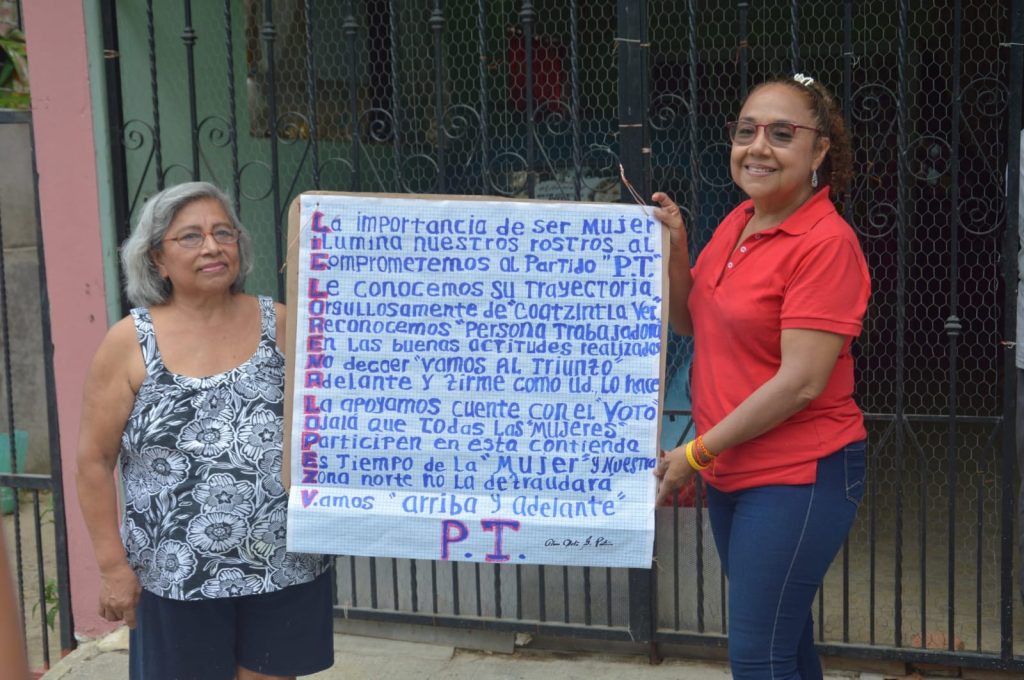 La importancia de ser Mujer
Ilumina nuestros rostros al
Comprometemos al Partido "P.T."
Le conocemos su trayectoria
Orgullosamente de "Coatzintla Ver.
Reconocemos "Persona Trabajadora
En las buenas actitudes realizadas
No decaer "vamos al triunfo"
Adelante y firme como ud. Lo hace
La apoyamos cuente con el "voto"
Ojalá que todas las "mujeres"
Participen en esta contienda
Es Tiempo de la "Mujer" y Nuestra
Zona norte no la defraudara
V.amos "arriba y adelante"
P.T.